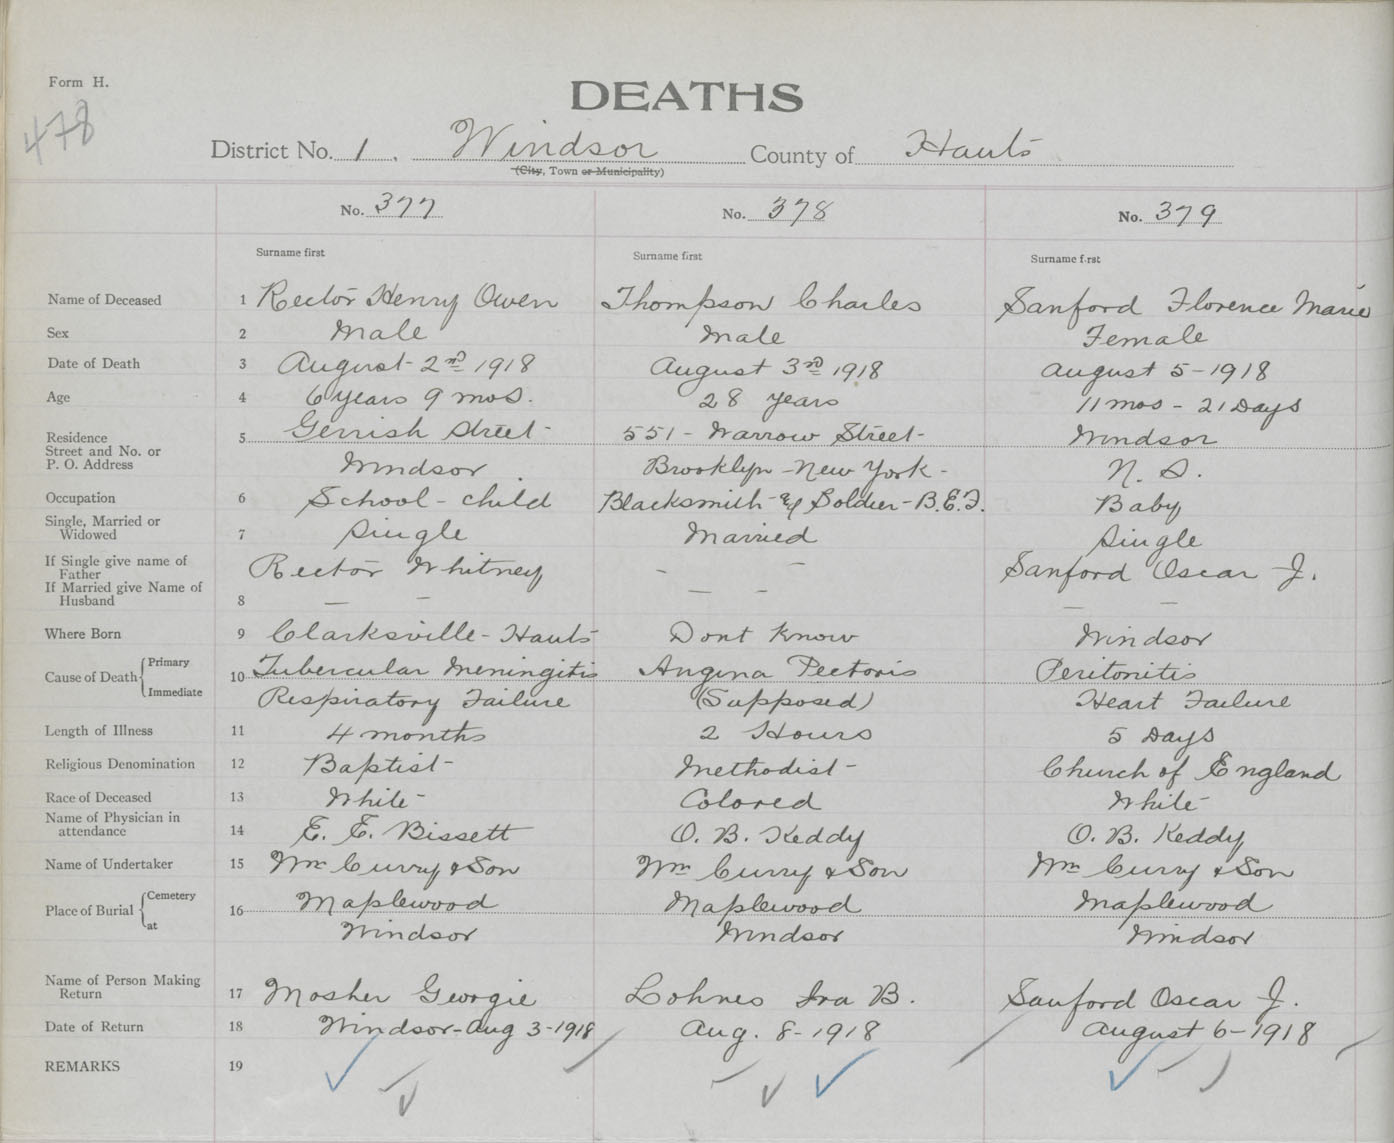 Form H.
DEATHS
478
District No. 1. Windsor County of Hants
(City, Town or Municipality)
No. 377 No. 378 No. 379
Surname first Surname first Surname first
Name of Deceased 1 Rector Henry Owen Thompson Charles Sanford Florence Marie
Sex 2 Male Male Female
Date of Death 3 August 2nd 1918 August 3rd 1918 August 5-1918
Age 4 6 years 9 mos. 28 years 11 mos - 21 Days
Residence 5 Gerrish Street - 551 - Warrow Street - Windsor
Street and No. or
P. O. Address Windsor Brooklyn - New York - N. S.
Occupation 6 School - child Blacksmith - & Soldier - B.E.F. Baby
Single, Married or
Widowed 7 Single Married Single
If Single give name of
Father Rector Whitney - - Sanford Oscar J.
If Married give Name of
Husband 8 - - - - - -
Where Born 9 Clarksville - Hants Dont Know Windsor
Cause of Death Primary 10 Tubercular Meningitis Angina Pectoris Peritonitis
Immediate Respiratory Failure (Supposed) Heart Failure
Length of Illness 11 4 months 2 Hours 5 Days
Religious Denomination 12 Baptist - Methodist - Church of England
Race of Deceased 13 White Colored White
Name of Physician in
attendance 14 E. E. Bissett O. B. Keddy O. B. Keddy
Name of Undertaker 15 Wm Curry & Son Wm Curry & Son Wm Curry & Son
Place of Burial Cemetery 16 Maplewood Maplewood Maplewood
at Windsor Windsor Windsor
Name of Person Making
Return 17 Mosher Georgie Lohnes Ira B. Sanford Oscar J.
Date of Return 18 Windsor - Aug 3-1918 Aug. 8-1918 August 6-1918
REMARKS 19